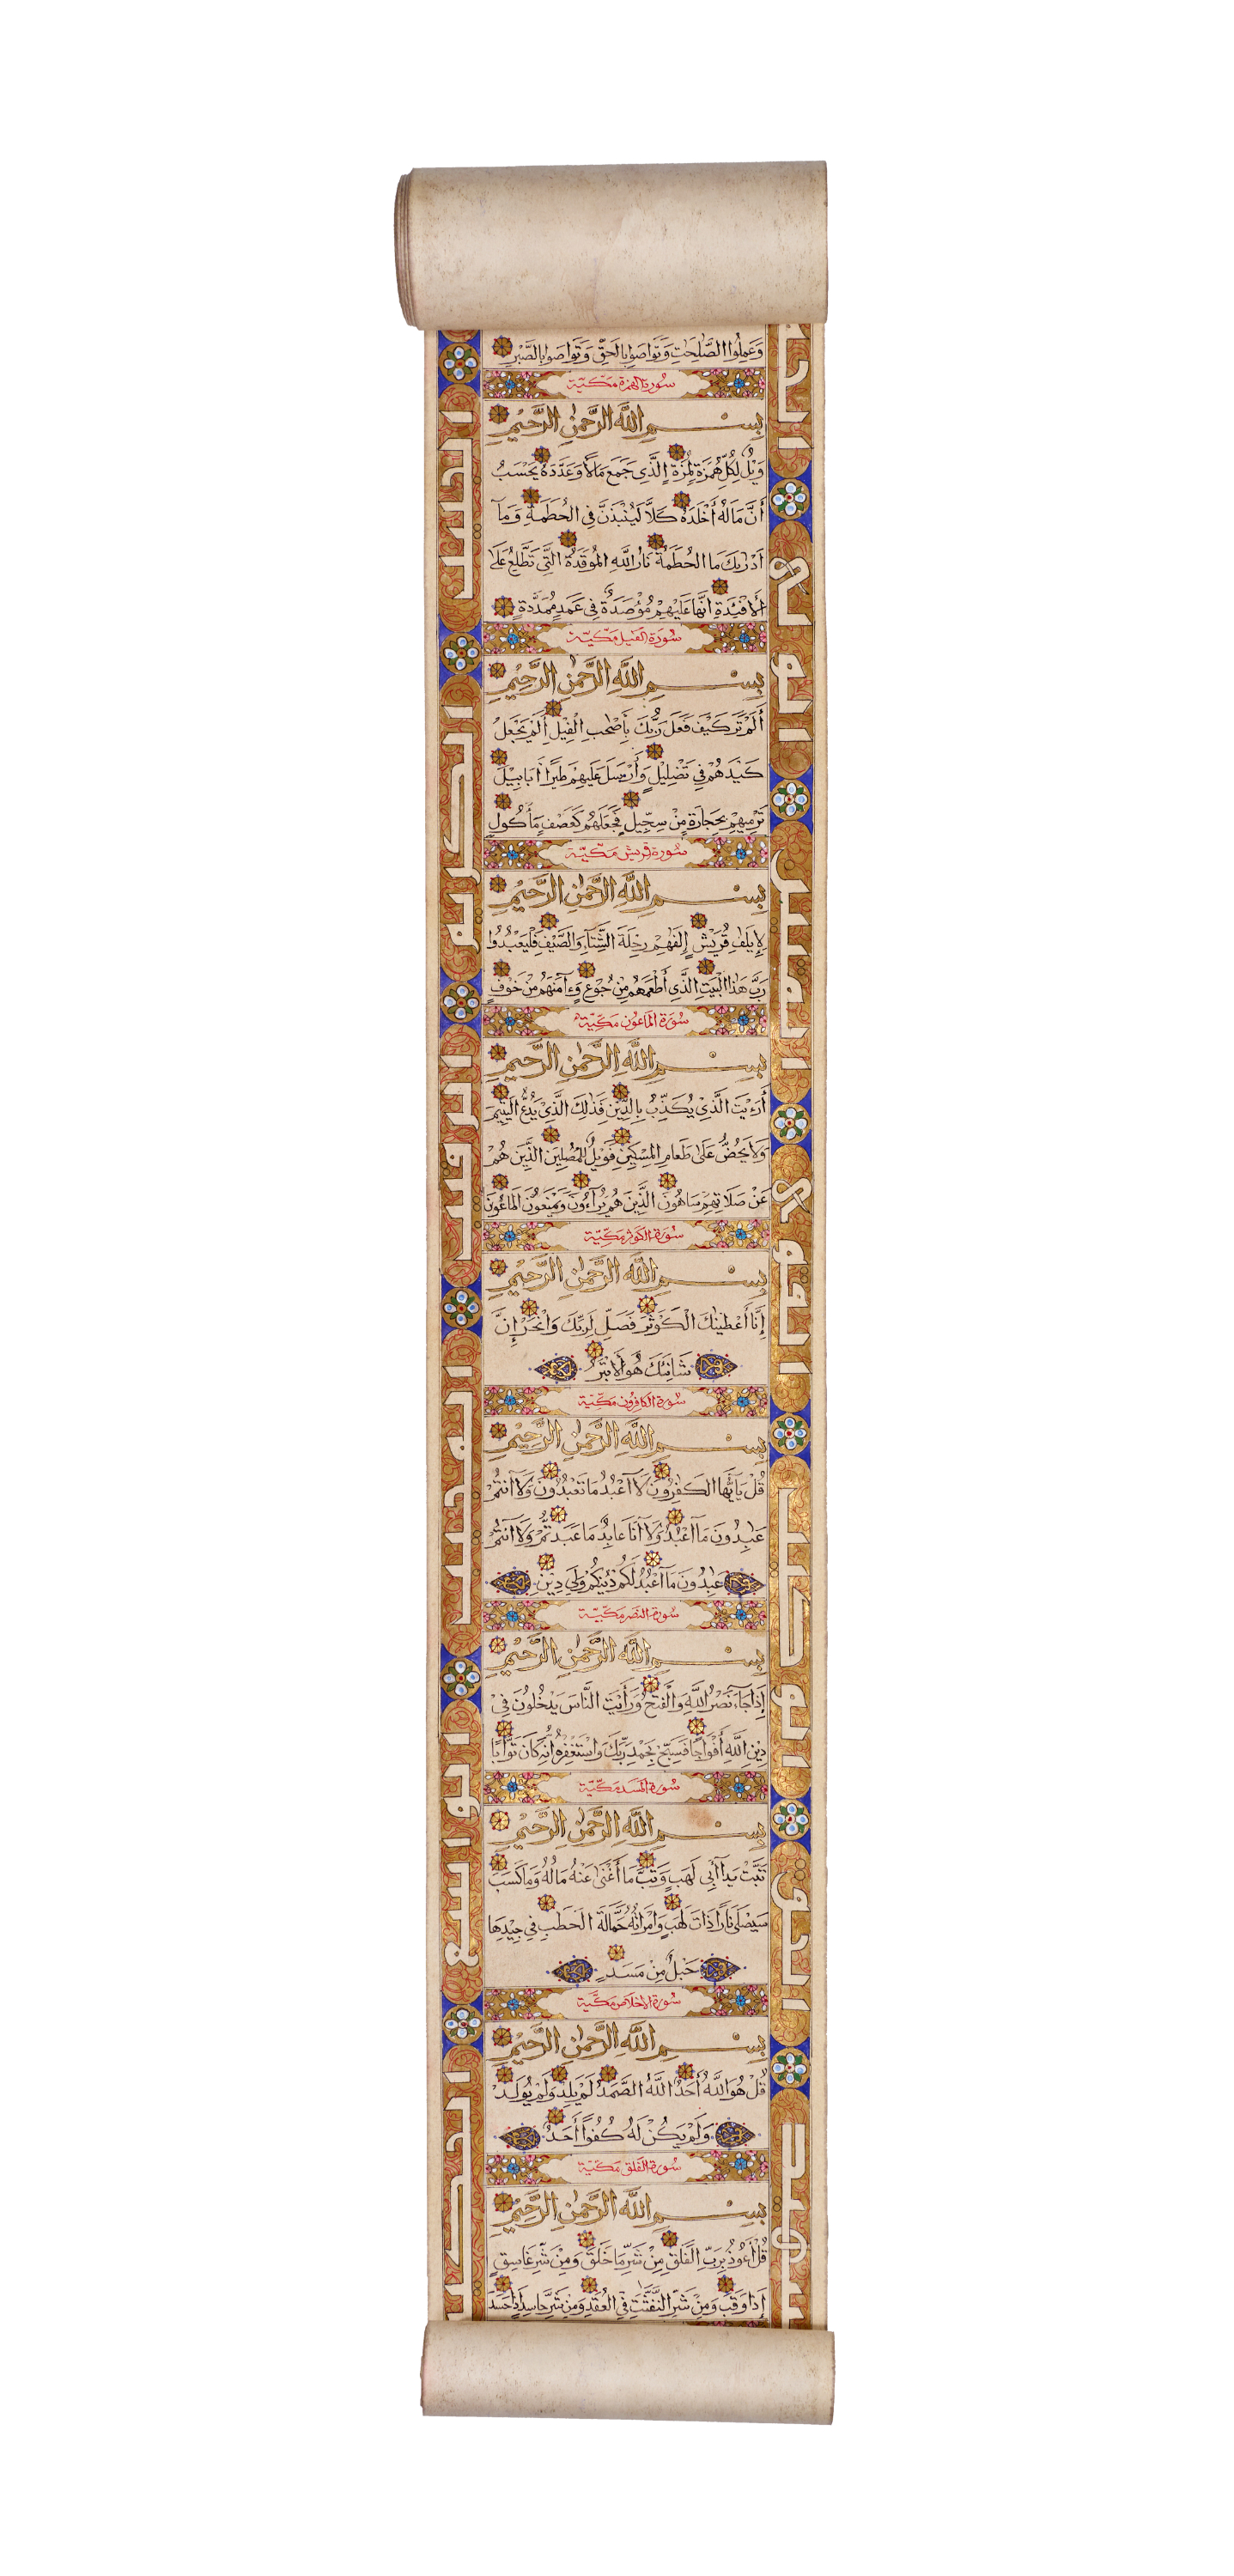 وَعَمِلُوا الصَّلِحَتِ وَتَوَاصَوْا بِالْحَقِّ وَتَوَاصَوْا بِالصَّبْرِ
سُورة الهمزة مكّيّة
بِسْمِ اللَّهِ الرَّحْمٰنِ الرَّحِيْمِ
وَيْلٌ لِكُلِّ هُمَزَةٍ لُمَزَةٍ الَّذِى جَمَعَ مَالًا وَعَدَّدَهُ يَحْسَبُ
أَنَّ مَالَهُ أَخْلَدَهُ كَلَّا لَيُنْبَذَنَّ فِى الْحُطَمَةِ وَمَآ
أَدْرٰىكَ مَا الْحُطَمَةُ نَارُ اللَّهِ الْمُوقَدَةُ الَّتِى تَطَّلِعُ عَلَى
الْأَفْئِدَةِ إِنَّهَا عَلَيْهِمْ مُؤْصَدَةٌ فِى عَمَدٍ مُمَدَّدَةٍ
سُورة الفيل مكّيّة
بِسْمِ اللَّهِ الرَّحْمٰنِ الرَّحِيْمِ
أَلَمْ تَرَ كَيْفَ فَعَلَ رَبُّكَ بِأَصْحٰبِ الْفِيْلِ أَلَمْ يَجْعَلْ
كَيْدَهُمْ فِى تَضْلِيْلٍ وَأَرْسَلَ عَلَيْهِمْ طَيْرًا أَبَابِيْلَ
تَرْمِيْهِمْ بِحِجَارَةٍ مِنْ سِجِّيْلٍ فَجَعَلَهُمْ كَعَصْفٍ مَأْكُولٍ
سُورة قريش مكّيّة
بِسْمِ اللَّهِ الرَّحْمٰنِ الرَّحِيْمِ
لِإِيلٰفِ قُرَيْشٍ إِلٰفِهِمْ رِحْلَةَ الشِّتَآءِ وَالصَّيْفِ فَلْيَعْبُدُوا
رَبَّ هٰذَا الْبَيْتِ الَّذِى أَطْعَمَهُمْ مِنْ جُوْعٍ وَءَامَنَهُمْ مِنْ خَوْفٍ
سُورة الماعون مكّيّة
بِسْمِ اللَّهِ الرَّحْمٰنِ الرَّحِيْمِ
أَرَءَيْتَ الَّذِى يُكَذِّبُ بِالدِّيْنِ فَذٰلِكَ الَّذِى يَدُعُّ الْيَتِيْمَ
وَلَا يَحُضُّ عَلَى طَعَامِ الْمِسْكِيْنِ فَوَيْلٌ لِلْمُصَلِّيْنَ الَّذِيْنَ هُمْ
عَنْ صَلَاتِهِمْ سَاهُونَ الَّذِيْنَ هُمْ يُرَآءُونَ وَيَمْنَعُونَ الْمَاعُونَ
سُورة الكوثر مكّيّة
بِسْمِ اللَّهِ الرَّحْمٰنِ الرَّحِيْمِ
إِنَّا أَعْطَيْنٰكَ الْكَوْثَرَ فَصَلِّ لِرَبِّكَ وَانْحَرْ إِنَّ
شَانِئَكَ هُوَ الْأَبْتَرُ
سُورة الكافرون مكّيّة
بِسْمِ اللَّهِ الرَّحْمٰنِ الرَّحِيْمِ
قُلْ يَأَيُّهَا الْكٰفِرُونَ لَآ أَعْبُدُ مَا تَعْبُدُونَ وَلَآ أَنْتُمْ
عٰبِدُونَ مَآ أَعْبُدُ وَلَآ أَنَا عَابِدٌ مَا عَبَدْتُّمْ وَلَآ أَنْتُمْ
عٰبِدُونَ مَآ أَعْبُدُ لَكُمْ دِيْنُكُمْ وَلِىَ دِيْنِ
سُورة النصر مكّيّة
بِسْمِ اللَّهِ الرَّحْمٰنِ الرَّحِيْمِ
إِذَا جَآءَ نَصْرُ اللَّهِ وَالْفَتْحُ وَرَأَيْتَ النَّاسَ يَدْخُلُونَ فِى
دِيْنِ اللَّهِ أَفْوَاجًا فَسَبِّحْ بِحَمْدِ رَبِّكَ وَاسْتَغْفِرْهُ إِنَّهُ كَانَ تَوَّابًا
سُورة المسد مكّيّة
بِسْمِ اللَّهِ الرَّحْمٰنِ الرَّحِيْمِ
تَبَّتْ يَدَآ أَبِى لَهَبٍ وَتَبَّ مَا أَغْنَى عَنْهُ مَالُهُ وَمَا كَسَبَ
سَيَصْلَى نَارًا ذَاتَ لَهَبٍ وَامْرَأَتُهُ حَمَّالَةَ الْحَطَبِ فِى جِيْدِهَا
حَبْلٌ مِنْ مَسَدٍ
سُورة الاخلاص مكّيّة
بِسْمِ اللَّهِ الرَّحْمٰنِ الرَّحِيْمِ
قُلْ هُوَ اللَّهُ أَحَدٌ اللَّهُ الصَّمَدُ لَمْ يَلِدْ وَلَمْ يُولَدْ
وَلَمْ يَكُنْ لَهُ كُفُوًا أَحَدٌ
سُورة الفلق مكّيّة
بِسْمِ اللَّهِ الرَّحْمٰنِ الرَّحِيْمِ
قُلْ أَعُوذُ بِرَبِّ الْفَلَقِ مِنْ شَرِّ مَا خَلَقَ وَمِنْ شَرِّ غَاسِقٍ
إِذَا وَقَبَ وَمِنْ شَرِّ النَّفّٰثٰتِ فِى الْعُقَدِ وَمِنْ شَرِّ حَاسِدٍ إِذَا حَسَدَ
الجليل
الكريم
الرقيب
المجيب
الواسع
الوكيل
القوي
المتين
الولي